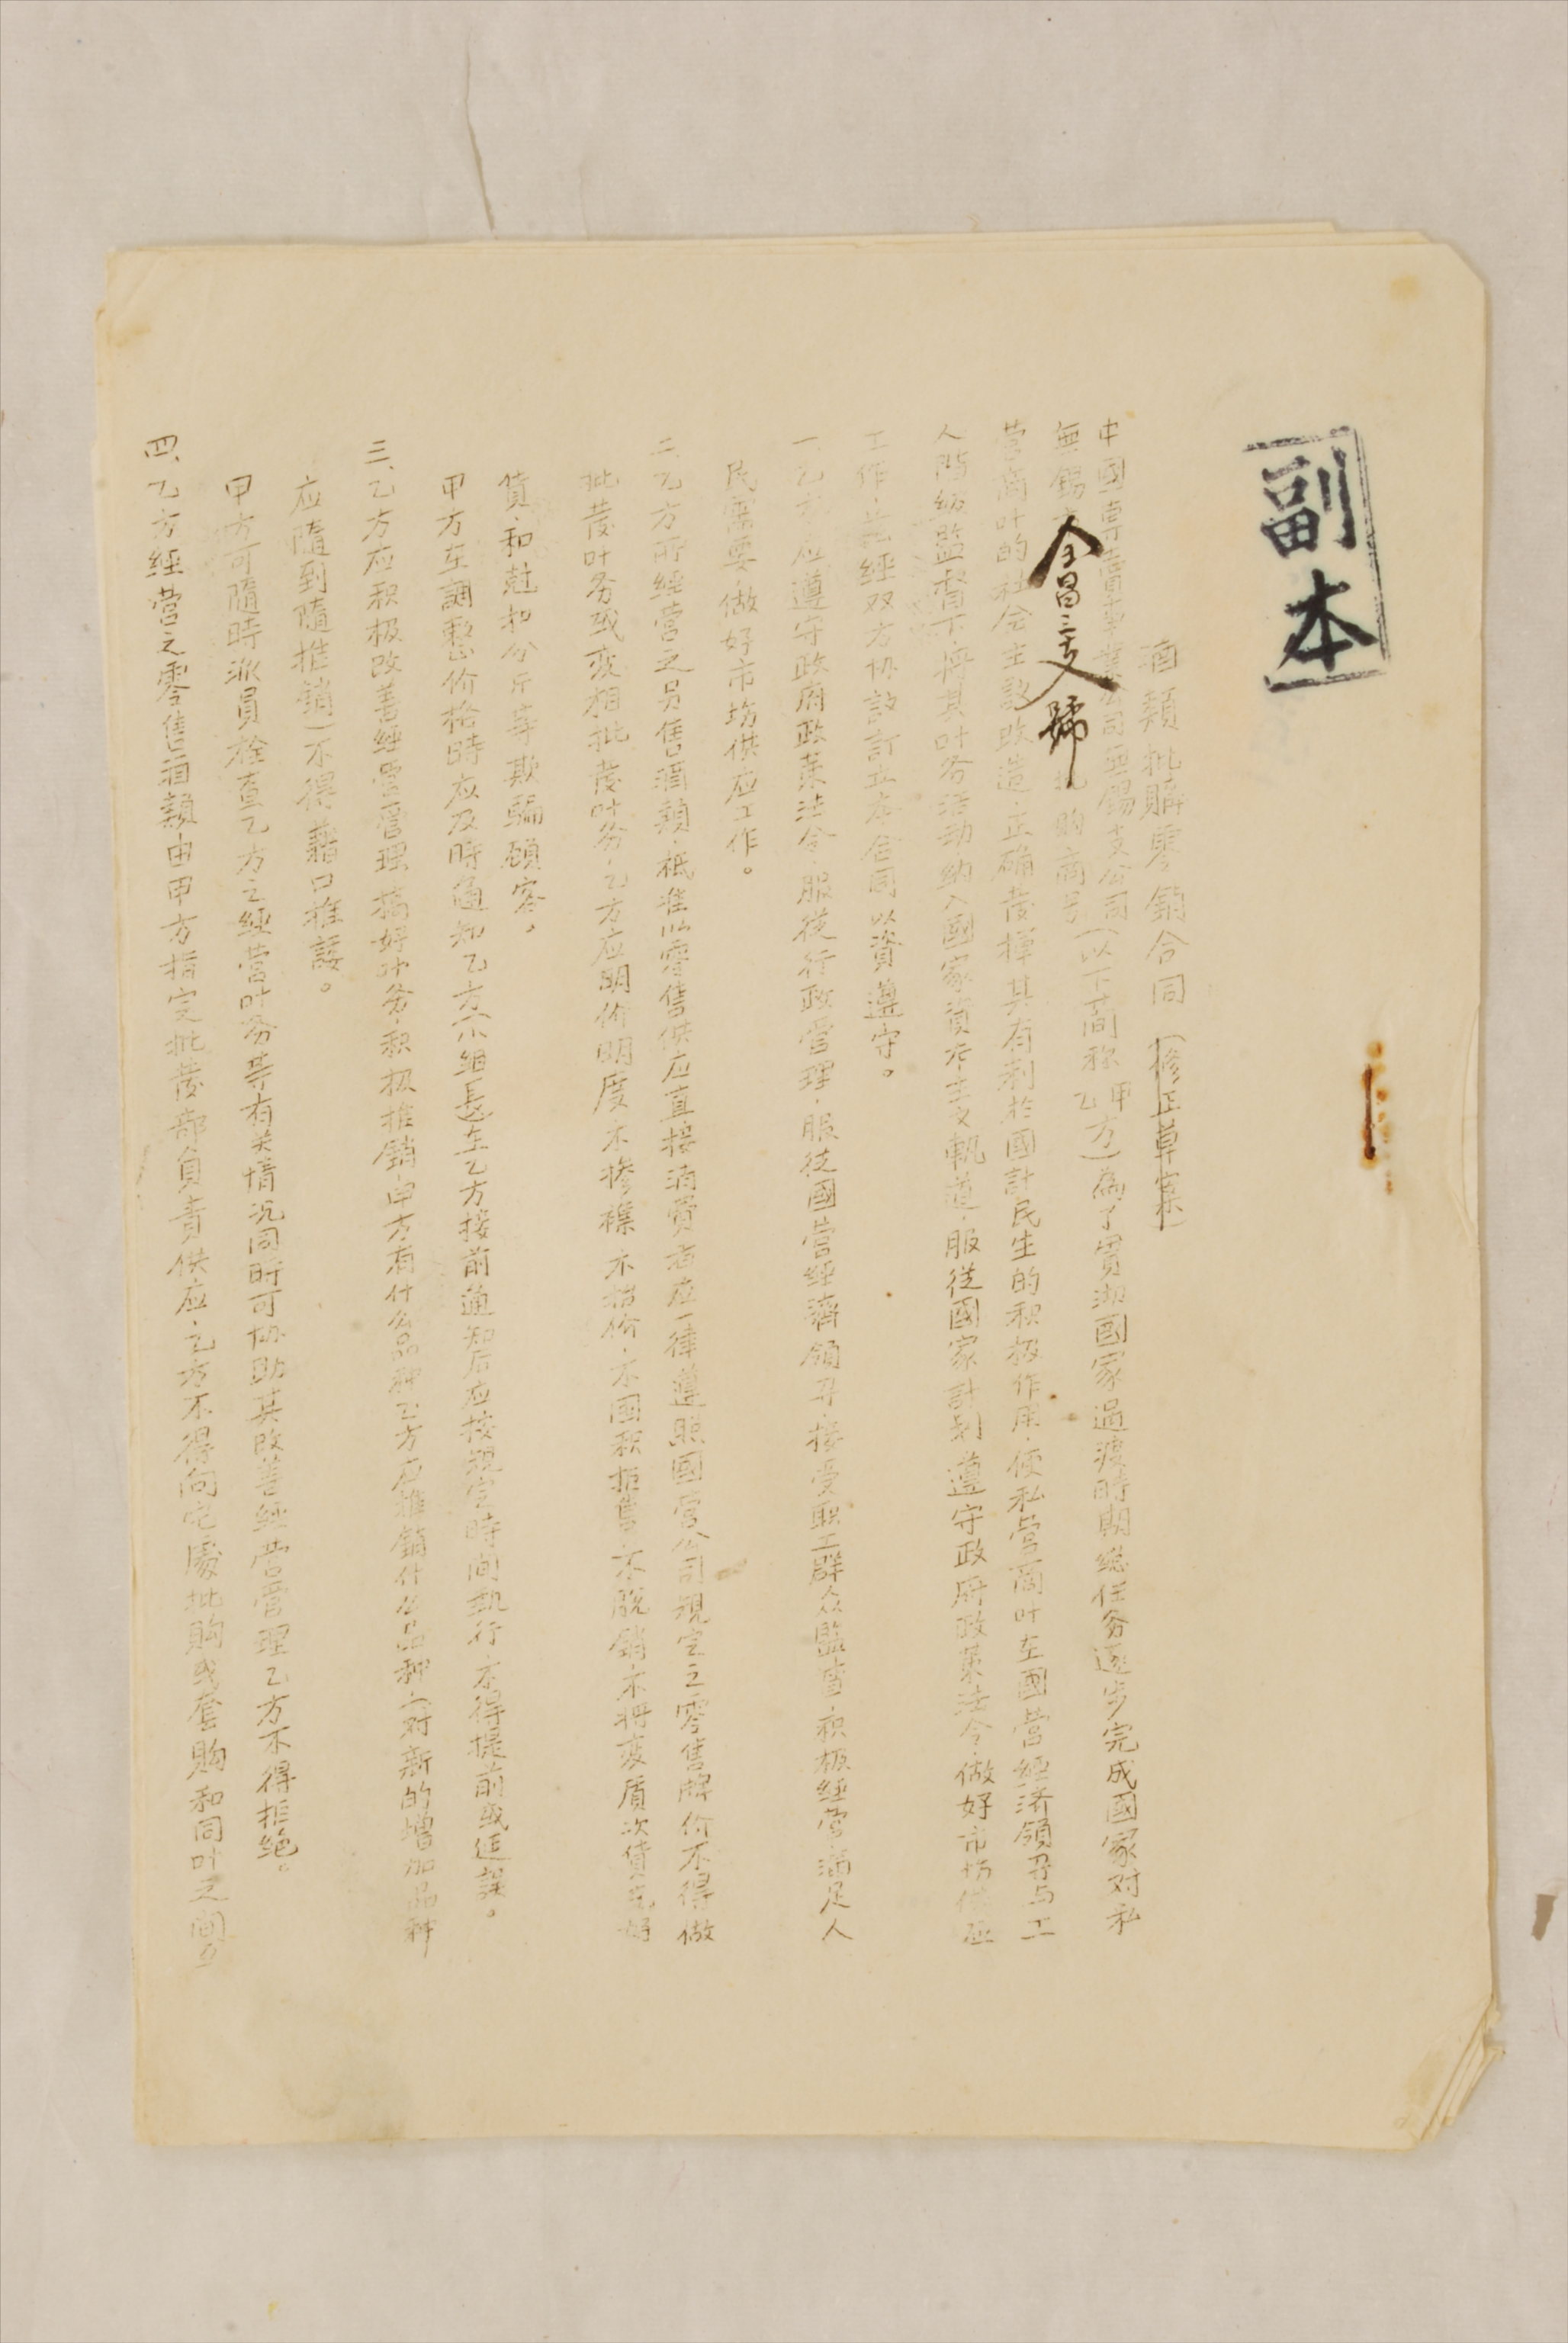 副本
酒類批購零銷合同（修正草案）
中國專賣事業公司無錫支公司
無錫市
全昌三支號
批购商号（以下簡称甲乙方）為了貫澈國家過渡時期總任务逐步完成國家对私
营商叶的社会主義改造，正确發揮其有利於國計民生的积极作用，使私营商叶在國营經济領导与工
人階級監督下，将其叶务活动納入國家資本主义軌道，服從國家計划，遵守政府政策法令，做好市場供应
工作，兹經双方协議訂立本合同以資遵守。
一、乙方应遵守政府政策法令，服從行政管理，服從國营經濟領导，接受职工群众監督，积极經营，滿足人
民需要，做好市場供应工作。
二、乙方所經营之另售酒類，祗准以零售供应直接消費者，应一律遵照國营公司規定之零售牌价不得做
批發叶务或变相批發叶务，乙方应明价明度，不摻雜，不抬价，不囤积拒售，不脫銷，不将变質次貨充好
貨，和尅扣分斤等欺騙顾客。
甲方在調整价格時应及時通知乙方（小組長）在乙方接前通知后应按規定時间執行，不得提前或延誤。
三、乙方应积极改善經营管理，搞好叶务，积极推銷，甲方有什么品种乙方应推銷什么品种（对新的增加品种
应隨到隨推銷）不得藉口推諉。
甲方可隨時派員检查乙方之經营叶务等有关情况同時可协助其改善經营管理乙方不得拒絕。
四、乙方經营之零售酒類由甲方指定批發部負責供应，乙方不得向它處批购或套购和同叶之间互